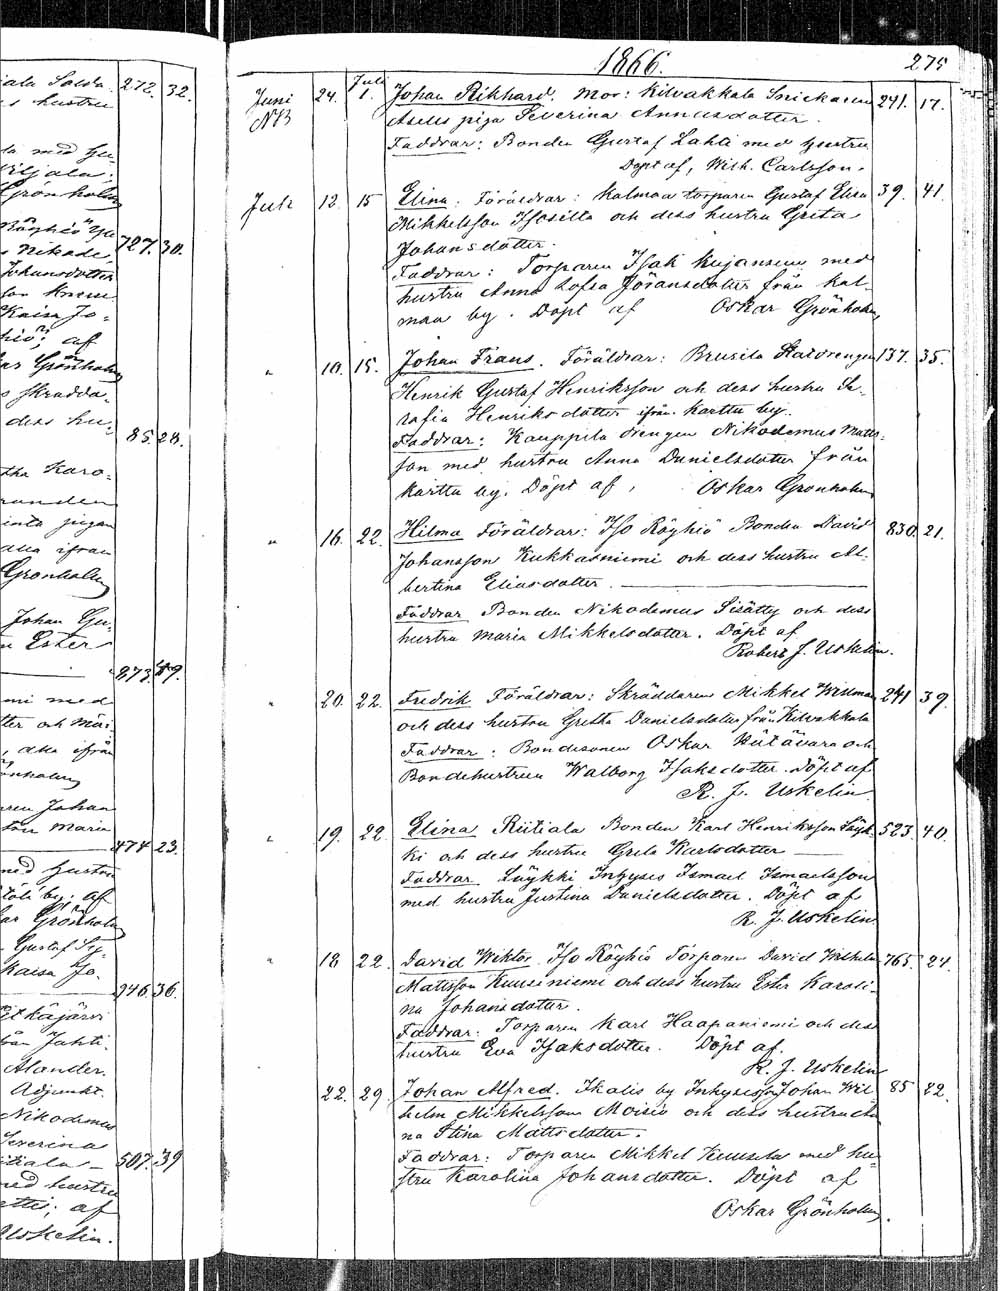 iala Solda 272. 32.
s hustru
la med Gu-
Viljala;
Grönholm
Röyhiö
727. 30.
Nikode
Johansdotter
son
Kaisa Jo-
hiö; af
ar Grönholm
s skrädda-
dess hu-
85. 28.
tha Karo-
randen
inta pigan
alla ifrån
Gronholm
Johan Gu-
Ester
873. 49.
mi med
ter och Mari
, alla ifrån
önholm
ren Johan
tru Maria
474 23.
ned hustru
töli by; af
ar Grönholm
Gustaf
Kaisa Jo-
946 36.
Itkäjärvi
från Jahti.
Alander.
Adjunkt.
Nikodemus
Severina
itiala
507. 39
ned hustru
; af
Uskelin.
1866. 275
Juni 24. Juli 1. Johan Rikhard. Mor: Kilvakkala Snickaren 241. 17.
NB Axells piga Severina Annasdotter.
Faddrar: Bonden Gustaf Lahti med hustru
Döpt af, Wilh. Carlsson.
Juli 12. 15 Elina. Föräldrar: Kalmaa torparen Gustaf Elias 39. 41.
Mikkelsson Isosilta och dess hustru Greta
Johansdotter.
Faddrar: Torparen Isak Kujansuu med
hustru Anna Sofia Jöransdotter från Kal-
maa by. Döpt af Oskar Grönholm
" 10. 15. Johan Frans. Föräldrar: Brusila Statdrengen 137. 35.
Henrik Gustaf Henriksson och dess hustru Se-
rafia Henriksdotter ifrån Karttu by.
Faddrar: Kauppila drengen Nikodemus Matts-
son med hustru Anna Danielsdotter från
Karttu by. Döpt af, Oskar Gronholm
" 16. 22. Hilma Föräldrar: Iso Röyhiö Bonden David 830. 21.
Johansson Kukkasniemi och dess hustru Al-
bertina Eliasdotter.
Faddrar Bonden Nikodemus Sisätty och dess
hustru Maria Mikkelsdotter. Döpt af
Robert J. Uskelin.
" 20. 22. Fredrik Föräldrar: Skräddaren Mikkel Widman 241 39.
och dess hustru Gretha Danielsdotter från Kilvakkala
Faddrar: Bondesonen Oskar och
Bondehustrun Walborg Isaksdotter. Döpt af
R. J. Uskelin.
" 19. 22. Elina Riitiala Bonden Karl Henriksson Läyk- 523. 40.
ki och dess hustru Greta Karlsdotter
Faddrar Läykki Inhyses Ismael Ismaelsson
med hustru Justina Danielsdotter. Döpt af
R. J. Uskelin.
" 18 22. David Wiktor. Iso Röyhiö Torparen David Wilhelm 765. 24.
Mattsson Kuusiniemi och dess hustru Ester Karoli-
na Johansdotter.
Faddrar: Torparen Karl Haapaniemi och dess
hustru Eva Isaksdotter. Döpt af.
R. J. Uskelin
22. 29. Johan Alfred. Ikalis by Inhysesson Johan Wil- 85 22.
helm Mikkelsson Moisio och dess hustru An
na Stina Mattsdotter.
Faddrar: Torparen Mikkel Kuusela med hu-
stru Karoliina Johansdotter. Döpt af
Oskar Grönholm.